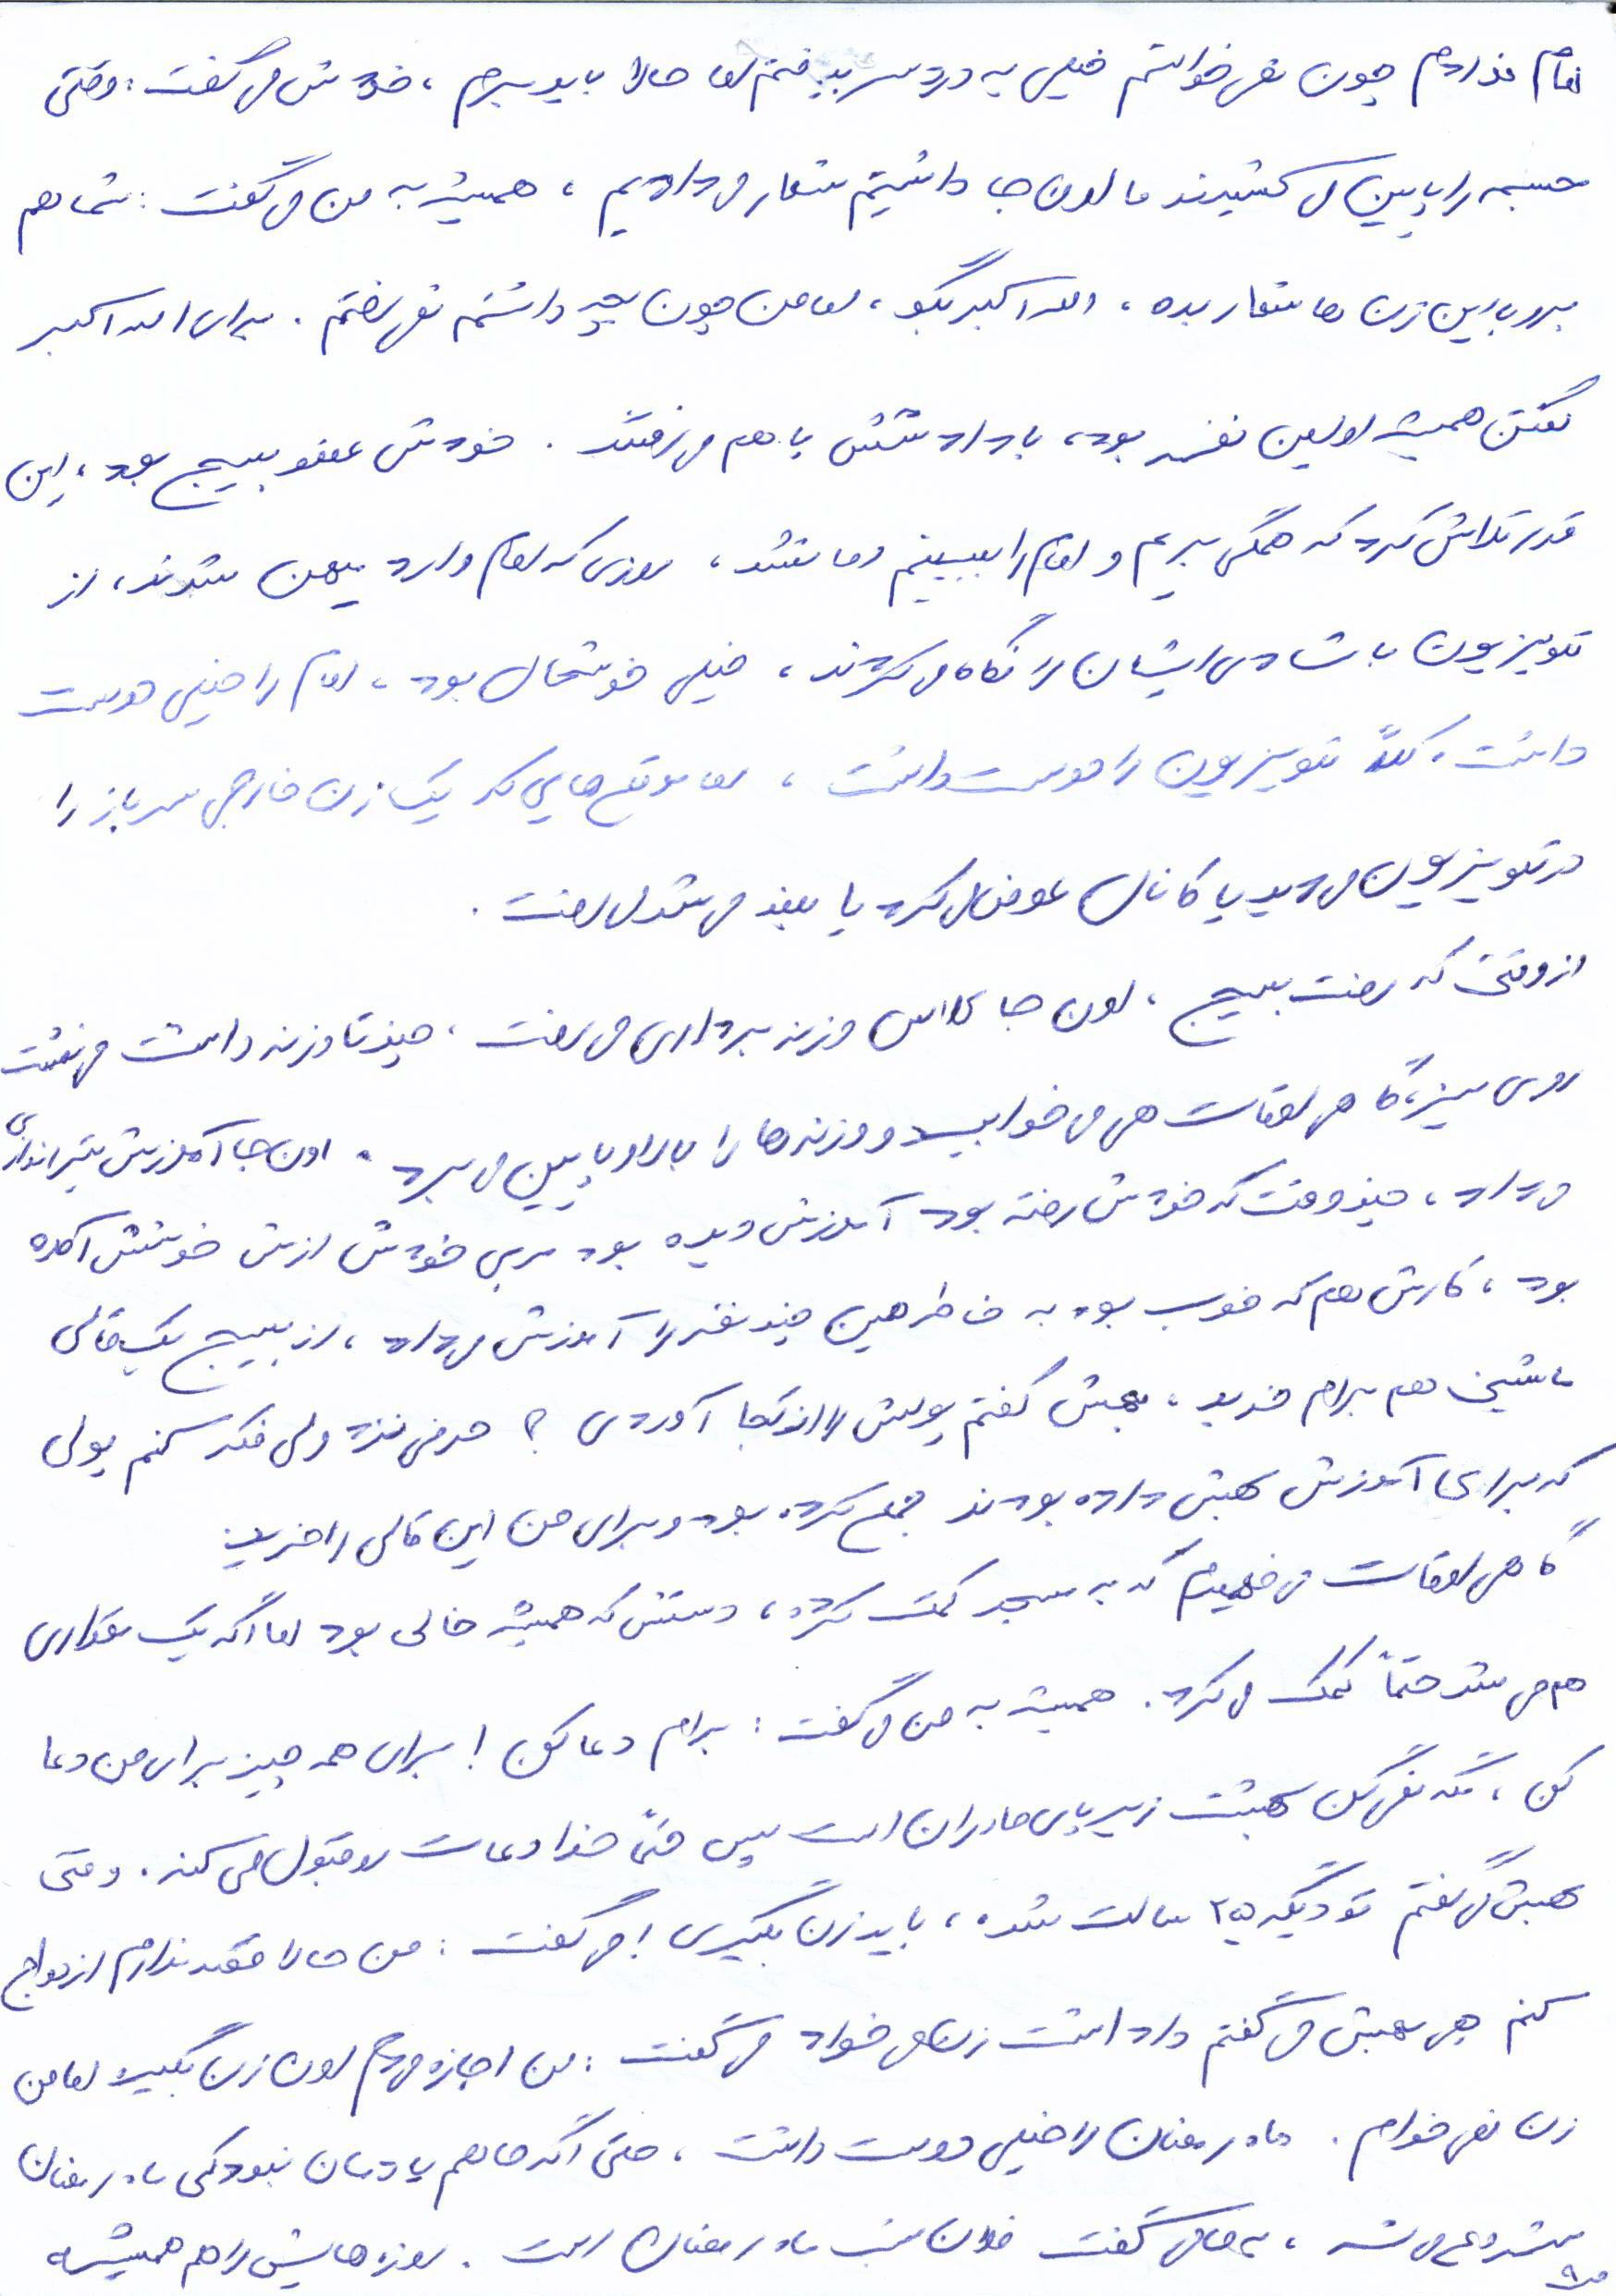 انجام ندادم چون نمی خواستم خیلی به دردسر بیفتم اما حالا باید ببرم ، خودش می گفت : وقتی
مجسمه را پایین می کشیدند ما اون جا داشتیم شعار می دادیم ، همیشه به من می گفت : شما هم
برو با این زن ها شعار بده ، الله اکبر بگو ، اما من چون بچه داشتم نمی رفتم . برای الله اکبر
گفتن همیشه اولین نفر بود ، با داداشش با هم می رفتند . خودش عضو بسیج بود ، این
قدر تلاش کرد که همگی بریم و امام را ببینیم اما نشد ، روزی که امام وارد میهن شدند ، از
تلویزیون با شادی ایشان را نگاه می کردند ، خیلی خوشحال بود ، امام را خیلی دوست
داشت ، کلاً تلویزیون را دوست داشت ، اما موقع هایی که یک زن خارجی سرباز را
در تلویزیون می دید یا کانال عوض می کرد یا بلند می شد می رفت .
از وقتی که رفت بسیج ، اون جا کلاس وزنه برداری می رفت ، چند تا وزنه داشت می نشست
روی میز ، گاهی اوقات هم می خوابید و وزنه ها را بالا و پایین می برد . اون جا آموزش تیراندازی
می داد ، چند وقت که خودش رفته بود آموزش دیده بود مربی خودش ازش خوشش آمده
بود ، کارش هم که خوب بود به خاطر همین چند نفر را آموزش می داد ، از بسیج یک قالی
ماشینی هم برام خرید ، بهش گفتم پولش را از کجا آوردی ؟ حرفی نزد ولی فکر کنم پولی
که برای آموزش بهش داده بودند جمع کرده بود و برای من این قالی را خرید
گاهی اوقات می فهمیدم که به مسجد کمک کرده ، دستش که همیشه خالی بود اما اگه یک مقداری
هم می شد حتماً کمک می کرد . همیشه به من می گفت : برام دعا کن ! برای همه چیز برای من دعا
کن ، مگه نمی گن بهشت زیر پای مادران است پس حتماً خدا دعات رو قبول می کند . وقتی
بهش می گفتم تو دیگه ۲۵ سالت شده ، باید زن بگیری ! می گفت : من حالا قصد ندارم ازدواج
کنم هی بهش می گفتم داداشت زن می خواد می گفت : من اجازه می دم اون زن بگیره اما من
زن نمی خوام . ماه رمضان را خیلی دوست داشت ، حتی اگه ما هم یادمان نبود کی ماه رمضان
شروع می شه ، به ما می گفت فلان شب ماه رمضان است . روزه هایش را هم همیشه
ص۹